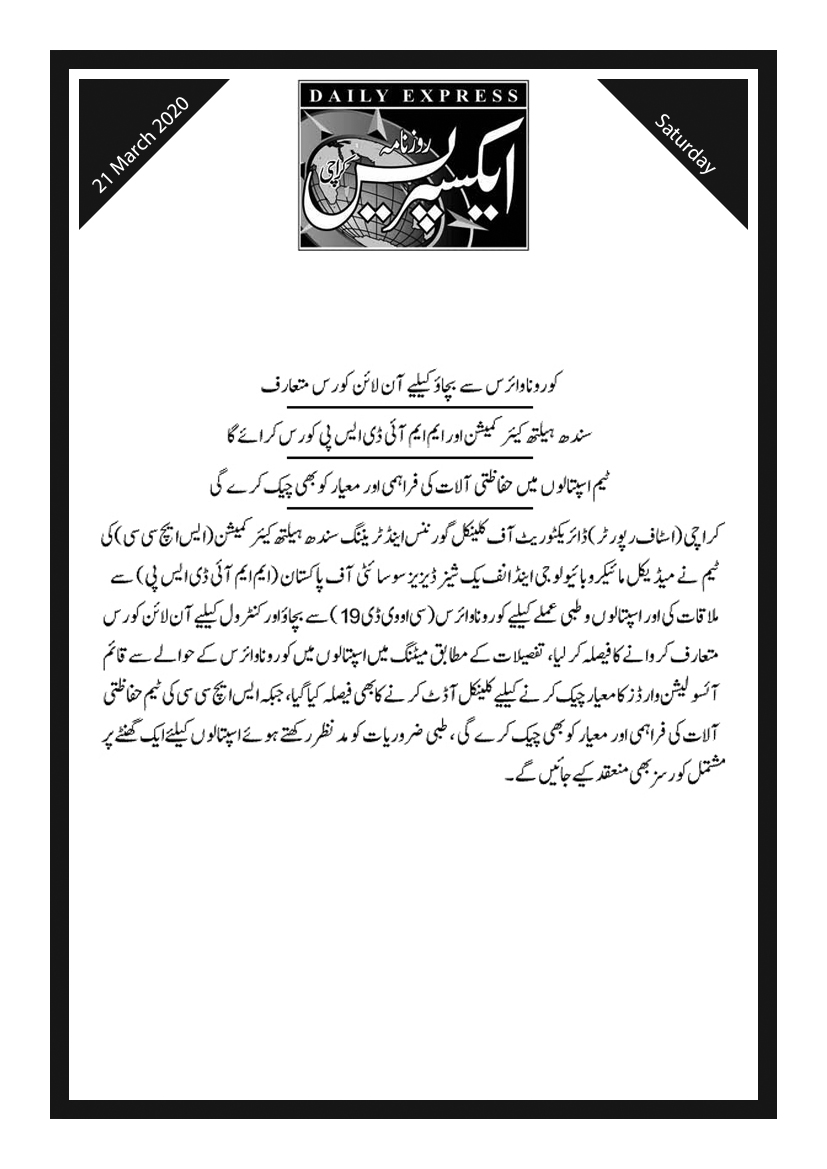 21 March 2020
Saturday
DAILY EXPRESS
روزنامہ
ایکسپریس
کراچی
کوروناوائرس سے بچاؤ کیلیے آن لائن کورس متعارف
سندھ ہیلتھ کیئر کمیشن اور ایم ایم آئی ڈی ایس پی کورس کرائے گا
ٹیم اسپتالوں میں حفاظتی آلات کی فراہمی اور معیار کو بھی چیک کرے گی
کراچی (اسٹاف رپورٹر) ڈائریکٹوریٹ آف کلینکل گورننس اینڈ ٹریننگ سندھ ہیلتھ کیئر کمیشن (ایس ایچ سی سی) کی
ٹیم نے میڈیکل مائیکروبائیولوجی اینڈ انفیکشینز ڈیزیز سوسائٹی آف پاکستان (ایم ایم آئی ڈی ایس پی) سے
ملاقات کی اور اسپتالوں و طبی عملے کیلیے کوروناوائرس (سی او وی ڈی 19) سے بچاؤ اور کنٹرول کیلیے آن لائن کورس
متعارف کروانے کا فیصلہ کرلیا، تفصیلات کے مطابق میٹنگ میں اسپتالوں میں کوروناوائرس کے حوالے سے قائم
آئسولیشن وارڈز کا معیار چیک کرنے کیلیے کلینکل آڈٹ کرنے کا بھی فیصلہ کیا گیا، جبکہ ایس ایچ سی سی کی ٹیم حفاظتی
آلات کی فراہمی اور معیار کو بھی چیک کرے گی، طبی ضروریات کو مدنظر رکھتے ہوئے اسپتالوں کیلئے ایک گھنٹے پر
مشتمل کورسز بھی منعقد کیے جائیں گے۔